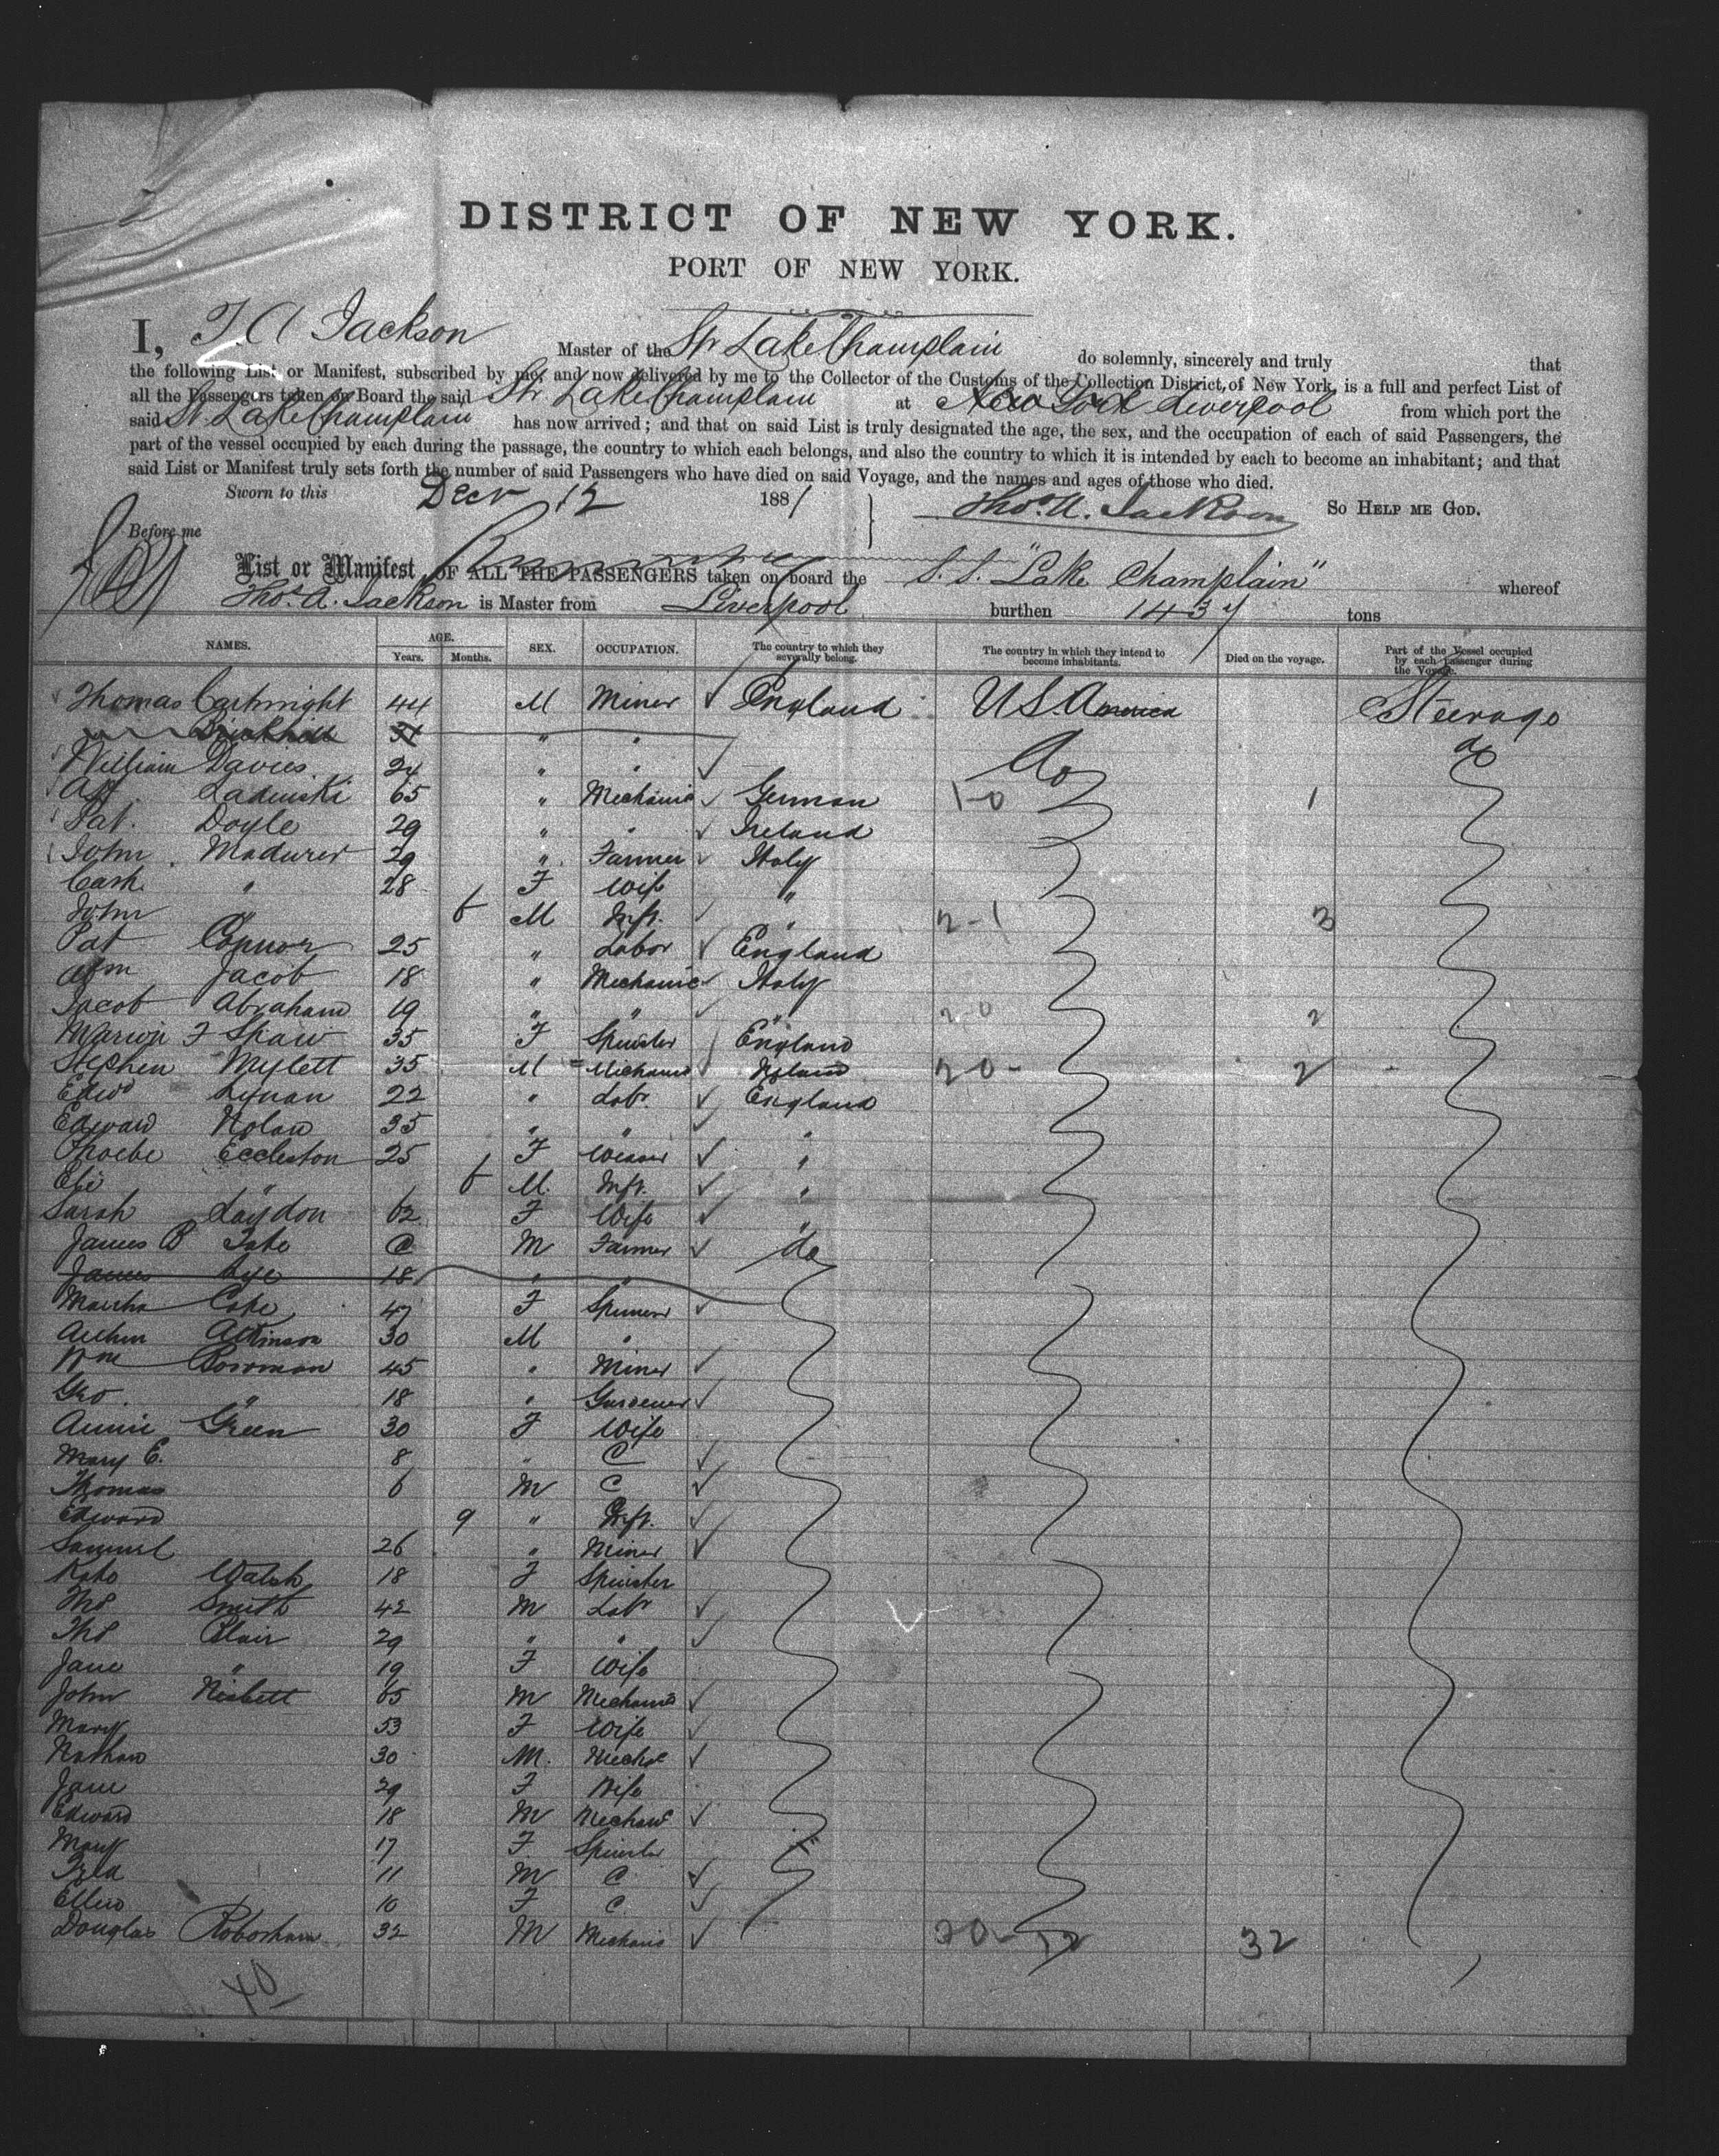 DISTRICT OF NEW YORK.
PORT OF NEW YORK.
I, T. A Jackson Master of the Str Lake Champlain do solemnly, sincerely and truly that
the following List or Manifest, subscribed by me, and now delivered by me to the Collector of the Customs of the Collection District, of New York, is a full and perfect List of
all the Passengers taken on Board the said Str Lake Champlain at New York Liverpool from which port the
said St. Lake Champlain has now arrived; and that on said List is truly designated the age, the sex, and the occupation of each of said Passengers, the
part of the vessel occupied by each during the passage, the country to which each belongs, and also the country to which it is intended by each to become an inhabitant; and that
said List or Manifest truly sets forth the number of said Passengers who have died on said Voyage, and the names and ages of those who died.
Sworn to this Decr 12 1881 Thos. A. Jackson So HELP ME GOD.
Before me
List or Manifest OF ALL THE PASSENGERS taken on board the S. S. "Lake Champlain" whereof
Thos. A. Jackson is Master from Liverpool burthen 1437 tons
NAMES. AGE. Years. Months. SEX. OCCUPATION. The country to which they severally belong. The country in which they intend to become inhabitants. Died on the voyage. Part of the Vessel occupied by each Passenger during the Voyage.
Thomas Cartwright 44 M Miner England U S. America Steerage
" "
William Davies 24 " " do do
Ladinski 65 " Mechanic German 1-0 1
Pat. Doyle 29 " " Ireland
John Madurer 29 " Farmer Italy
Cath " 28 F Wife "
John " 6 M Inft. " 2-1 3
Pat Connor 25 " Labor England
Jacob 18 " Mechanic Italy
Jacob Abraham 19 " " " 2-0 2
Marion F Shaw 35 F Spinster England
Stephen Mylett 35 M Mechanic Ireland 20- 2
Edwd Lynan 22 " Labr England
Edward Nolan 35 " " "
Phoebe Eccleston 25 F Weaver "
Eli " 6 M. Inft. "
Sarah Laydon 62 F Wife "
James B Tate C M Farmer do
James Lye 18 " "
Martha Cope 47 F Spinner
Arthur Atkinson 30 M "
Wm Bowman 45 " Miner
Geo. " 18 " Gardener
Annie Green 30 F Wife
Mary E. 8 " C
Thomas 6 M C
Edward 9 " Inft.
Samuel 26 " Miner
Kate Walsh 18 F Spinster
Thos Smith 42 M Labr
Thos Blair 29 " "
Jane " 19 F Wife
John Nisbett 65 M Mechanic
Mary 53 F Wife
Nathan 30 M. Mechc
Jane 29 F Wife
Edward 18 M Mechanc
Mary 17 F. Spinster
Fred 11 M C
Ellen 10 F C
Douglas Roborham 32 M Mechanic 20-12 32
40